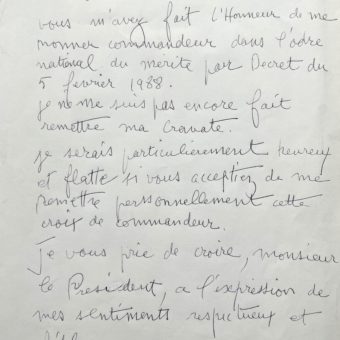 vous m'avez fait l'Honneur de me
nommer commandeur dans l'odre
national du merite par Decret du
5 fevrier 1988.
je ne me suis pas encore fait
remettre ma cravate.
je serais particulierement heureux
et flatté si vous acceptiez de me
remettre personnellement cette
croix de commandeur.
je vous prie de croire, monsieur
le Président, a l'expression de
mes sentiments respectueux et